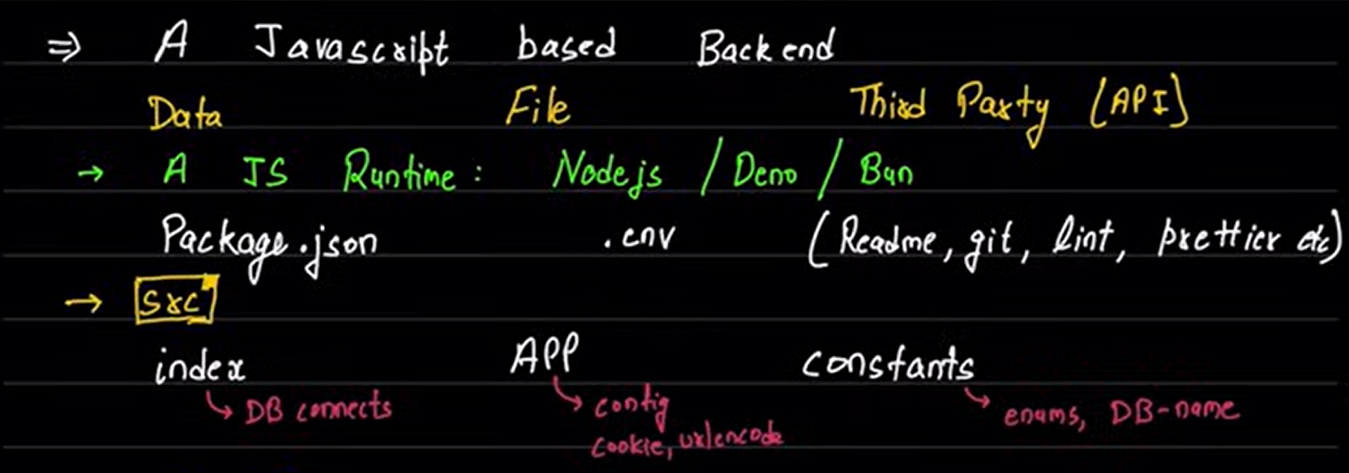 ⇒ A Javascript based Backend
Data File Third Party (API)
→ A JS Runtime: Nodejs / Deno / Bun
Package.json .env (Readme, git, lint, prettier etc)
→ src
index APP constants
↳ DB connects ↳ config ↳ enums, DB-name
cookie, urlencode